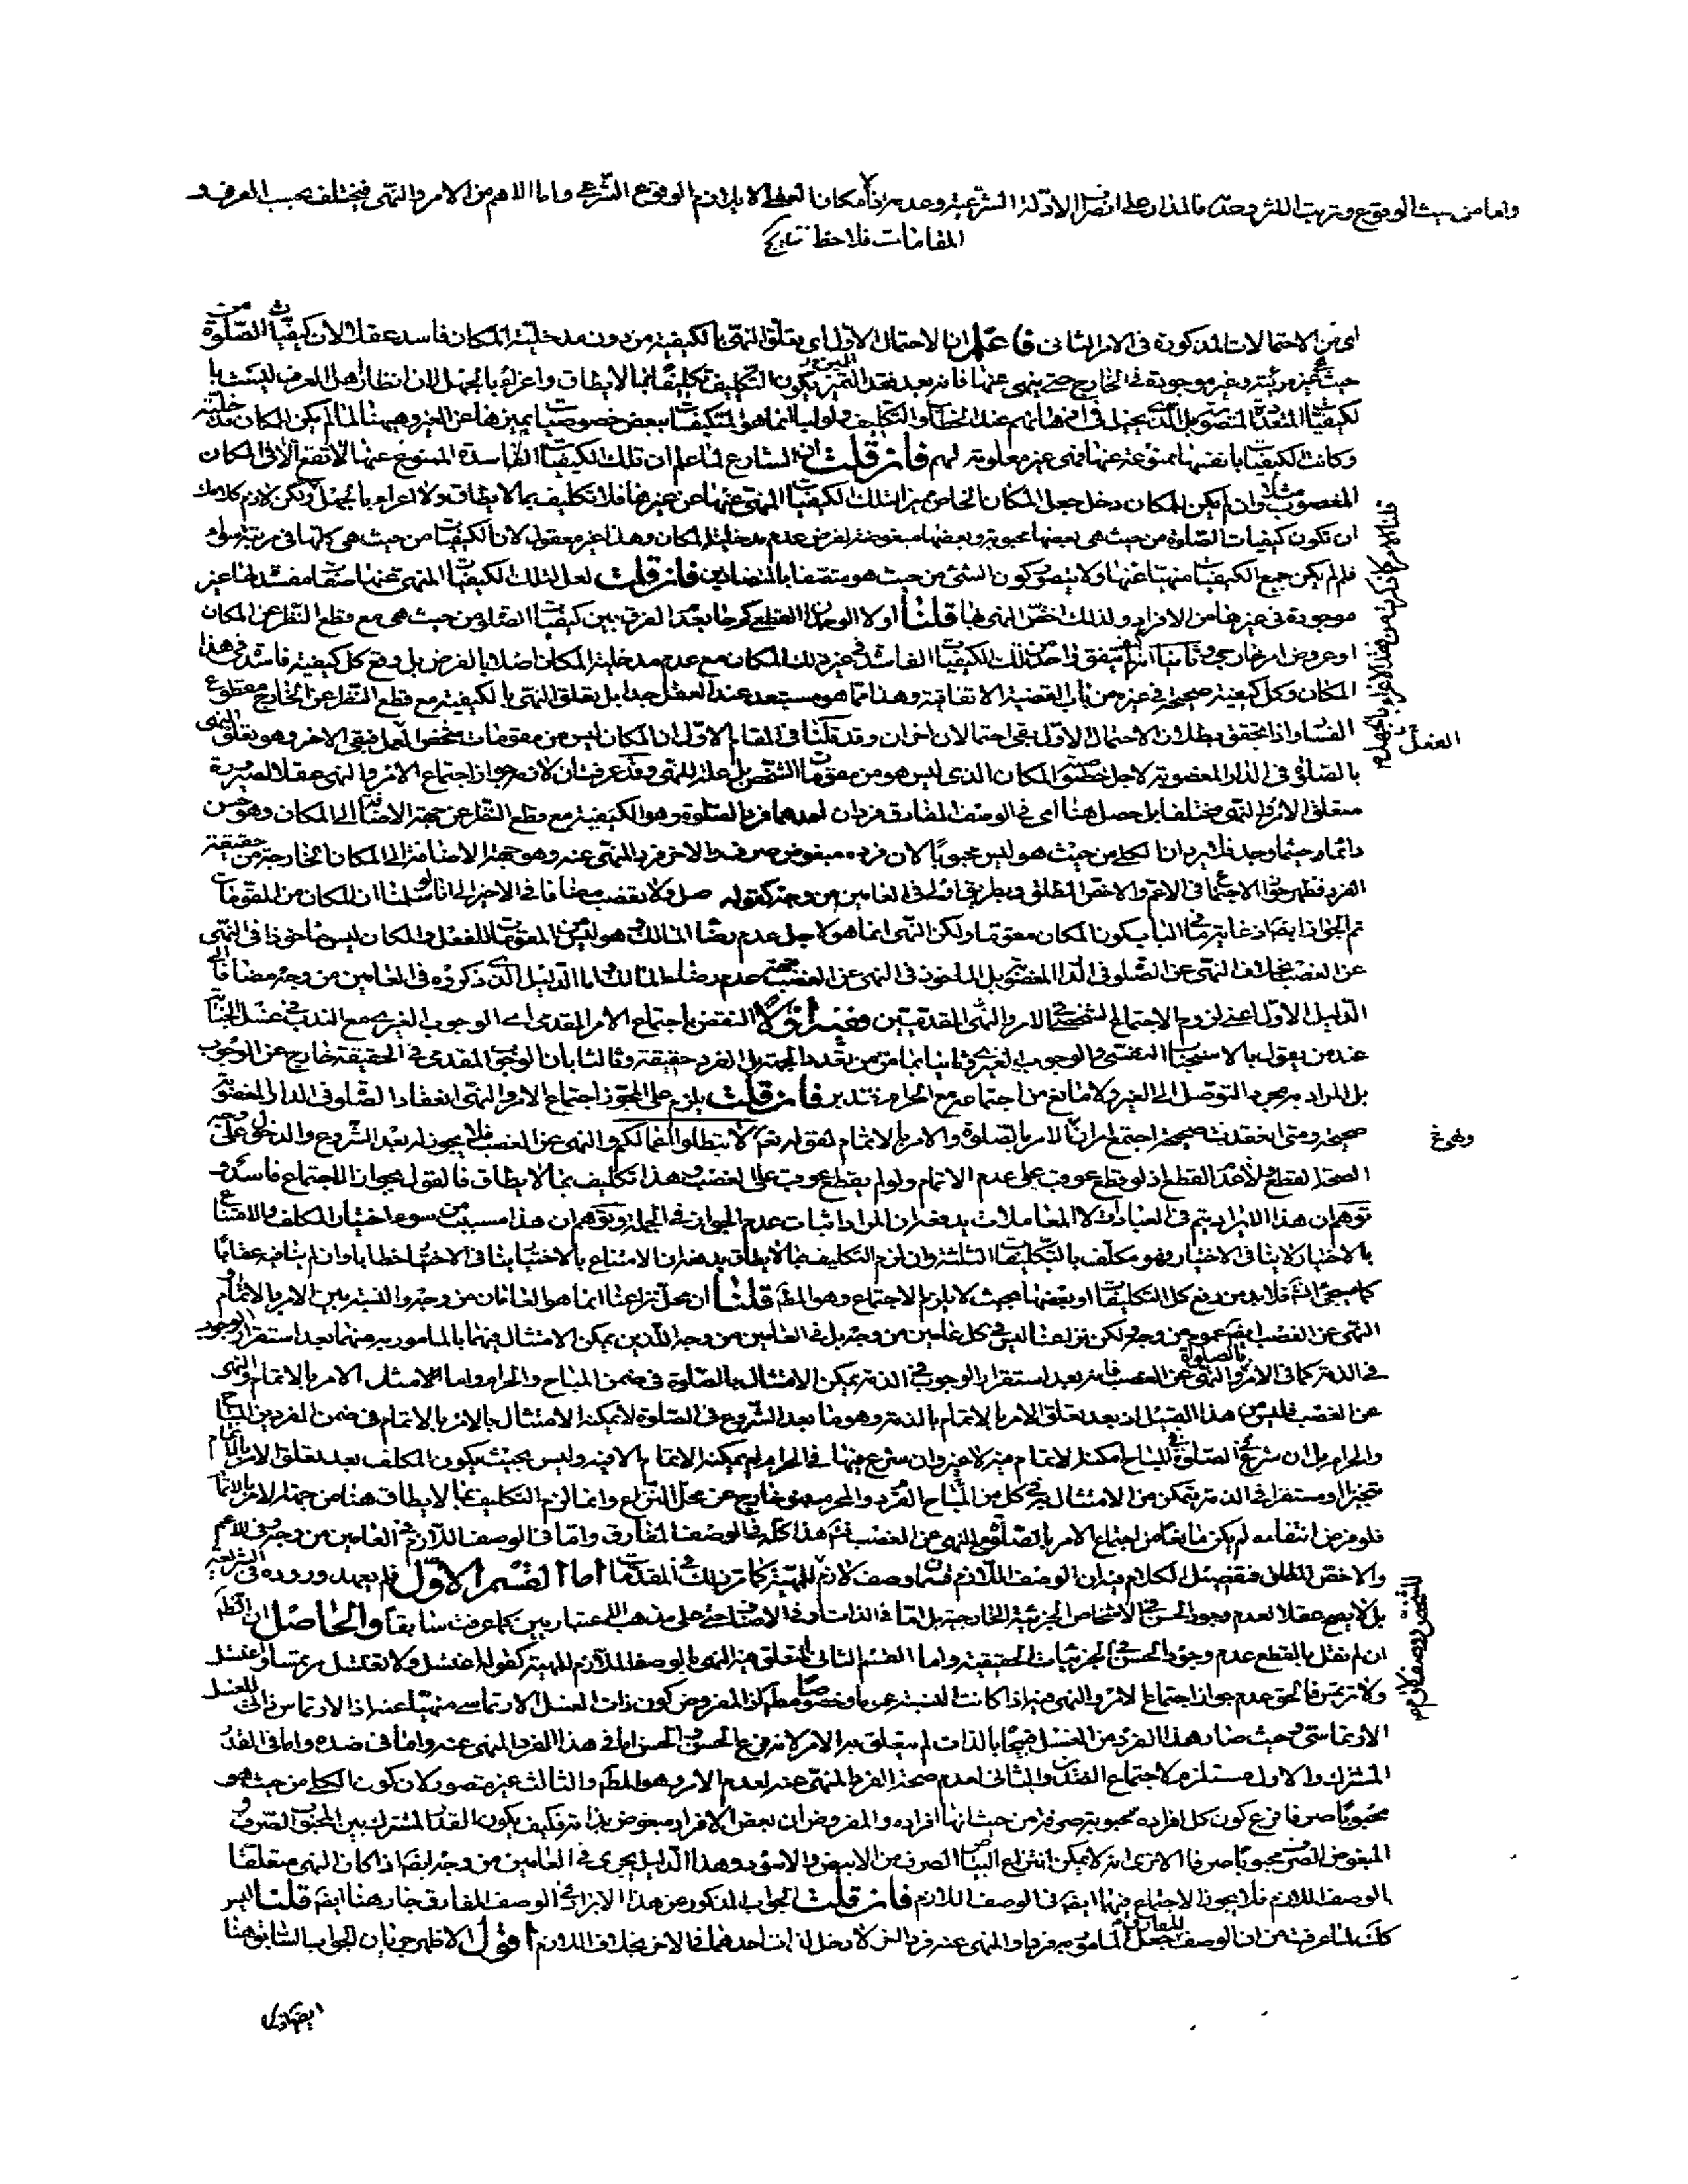 واما من حيث الوقوع وترتب الاثر وحده فالمدار على انصراف الادلة الشرعية وعدمه فان امكان العقلى لا يلازم الوقوع الشرعى واما الاهم من الامر والنهى فيختلف بحسب العرف و
المقامات فلاحظ
اى من الاحتمالات المذكورة فى الامر الثانى فاعلم ان الاحتمال الاول اى تعلق النهى بالكيفية من دون مدخلية المكان فاسد عقلا لان كيفيات الصلوة من
حيث هى غير مرئية وغير موجودة فى الخارج حتى ينهى عنها فانه بعد فقد التميز يكون التكليف تكليفا بما لا يطاق واغراء بالجهل لان انظار اهل العرف ليست با
لكيفيات المتعددة المتصورة الذى يحيل فى اذهانهم عند الخطاب والتكليف ولو اليها انما هو المتكيفات ببعض خصوصيات يميزها عن الغير وهيهنا لما لم يكن المكان مدخلية
وكانت الكيفيات بانفسها ممنوعة عنها فهى غير معلومة لهم فان قلت ان الشارع لما علم ان تلك الكيفيات الفاسدة الممنوع عنها لا تقع الا فى المكان
المغصوب مثلا وان لم يكن المكان دخل جعل المكان الخاص ميزا لتلك الكيفيات المنهى عنها عن غيرها فلا تكليف بما لا يطاق ولا اغراء بالجهل ولكن لازم كلامك
ان تكون كيفيات الصلوة من حيث هى بعضها محبوبة وبعضها مبغوضة لفرض عدم مدخلية المكان وهذا غير معقول لان الكيفيات من حيث هى كلها فى مرتبة سواء
فلم لم يكن جميع الكيفيات منهيا عنها ولا يتصور كون الشئ من حيث هو متصفا بالمتضادين فان قلت لعل لتلك الكيفيات المنهى عنها صفة مفسدة لها غير
موجودة فى غيرها من الافراد ولذلك اختص النهى بها قلنا اولا الوجدان القطع كرها بعد الفرق بين كيفيات الصلوة من حيث هى مع قطع النظر عن المكان
او عروض امر خارجى وثانيا انه لم يتفق فى احد من تلك الكيفيات الفاسدة فى غير ذلك المكان مع عدم مدخلية المكان اصلا بالفرض بل وقع كل كيفية فاسدة فى هذا
المكان وكل كيفية صحيحة فى غيره من باب القضية الاتفاقية وهذا مما هو مستبعد عند العقل جدا بل تعلق النهى بالكيفية مع قطع النظر عن الخارج مقطوع
الفساد واذا تحقق بطلان الاحتمال الاول بقى احتمالان اخران وقد قلنا فى المقام الاول ان المكان ليس من مقومات شخص الفعل فبقى الاخر وهو تعلق النهى
بالصلوة فى الدار المغصوبة لاجل خصوص المكان الذى ليس هو من مقومات الشخص بل علة للنهى وقد عرفت ان لازمه جواز اجتماع الامر والنهى عقلا لصيرورة
متعلق الامر والنهى مختلفا بل حصل هنا اى فى الوصف المفارق فردان احدهما فرد الصلوة وهو الكيفية مع قطع النظر عن جهة الاضافة الى المكان وهو حسن
دائما وحيثما وجد فلم يرد ان الكلى من حيث هو ليس محبوبا لان فرده مبغوض صرف والاخر فرد المنهى عنه وهو جهة الاضافة الى المكان الخارجة من حقيقة
الفرد فظهر جواز الاجتماع فى الاعم والاخص المطلق وبطريق اولى فى العامين من وجه كقوله صل ولا تغصب مضافا فى الاخير الى انا لو سلمنا ان المكان من المقومات
تم الجواز ايضا اذ غاية ما فى الباب كون المكان مقوما ولكن النهى انما هو لاجل عدم رضا المالك وهو ليس من المقومات للفعل والمكان ليس ماخوذا فى النهى
عن الغصب بخلاف النهى عن الصلوة فى الدار المغصوبة بل الماخوذ فى النهى عن الغصب جهة عدم رضاء المالك واما الدليل الذى ذكروه فى العامين من وجه مضافا الى
الدليل الاول اعنى لزوم الاجتماع الشخصى الامر والنهى المقدميين ففيه اولا النقض باجتماع الامر المقدمى اى الوجوب الغيرى مع الندب فى غسل الجنابة
عند من يقول بالاستحباب النفسى والوجوب الغيرى وثانيا بما مر من تعدد الجهة بل الفرد حقيقة وثالثا بان الوجوب المقدمى فى الحقيقة خارج عن الوجوب
بل المراد به مجرد التوصل الى الغير ولا مانع من اجتماعه مع الحرام فتدبر فان قلت يلزم على المجوز اجتماع الامر والنهى انعقاد الصلوة فى الدار المغصوبة
صحيحة ومتى انعقدت صحيحة اجتمع امران الامر بالصلوة والامر بالاتمام لقوله تعم لا تبطلوا اعمالكم والنهى عن الغصب فلا يجوز له بعد الشروع والدخول على وجه
الصحة القطع ولا عدم القطع اذ لو قطع عوقب على عدم الاتمام ولو لم يقطع عوقب على الغصب وهذا تكليف بما لا يطاق فالقول بجواز الاجتماع فاسد و
توهم ان هذا الايراد يتم فى العبادات لا المعاملات يدفعه ان المراد اثبات عدم الجواز فى الجملة وتوهم ان هذا مسبب من سوء اختيار المكلف والامتناع
بالاختيار لا ينافى الاختيار وهو مكلف بالتكليفات الثلثة وان لزم التكليف بما لا يطاق يدفعه ان الامتناع بالاختيار ينافى الاختيار خطابا وان لم يناف عقابا
كما سيجئ انشه فلا بد من رفع كل التكليفات او بعضها بحيث لا يلزم الاجتماع وهو المط قلنا ان محل نزاعنا انما هو العامان من وجه والنسبة بين الامر بالاتمام و
النهى عن الغصب ايضا عموم من وجه ولكن نزاعنا ليس فى كل عامين من وجه بل فى العامين من وجه اللذين يمكن الامتثال فيهما بالمامور به منهما بعد استقرار الوجوب
فى الذمة كما فى الامر بالصلوة والنهى عن الغصب فانه بعد استقرار الوجوب فى الذمة يمكن الامتثال بالصلوة فى ضمن المباح والحرام واما الامتثال الامر بالاتمام والنهى
عن الغصب فليس من هذا القبيل اذ بعد تعلق الامر بالاتمام بالذمة وهو ما بعد الشروع فى الصلوة لا يمكنه الامتثال بالامر بالاتمام فى ضمن الفردين المباح
والحرام بل ان شرع فى الصلوة فى المباح امكنه الاتمام فيه لا غير وان شرع فيها فى الحرام لم يمكنه الاتمام الا فيه وليس بحيث يكون المكلف بعد تعلق الامر بالاتمام
متخيرا ومستقرا فى الذمة يتمكن من الامتثال به فى كل من المباح الفرد والمحرم فهو خارج عن محل النزاع وانما لزم التكليف بما لا يطاق هنا من جهة الامر بالاتمام
فلو فرض انتفائه لم يكن مانعا من اجتماع الامر بالصلوة والنهى عن الغصب ثم هذا كله فى الوصف المفارق واما فى الوصف اللازم فى العامين من وجه وفى الاعم
والاخص المطلق فتفصيل الكلام فيه ان الوصف اللازم قسمان وصف لازم للهية كما مر ذلك فى المقدمات اما القسم الاول فلم يعهد وروده فى الشريعة
بل لا يصح عقلا لعدم وجود الحسن فى الاشخاص الجزئية الخارجية بل اما فى الذات او فى الاصناف حتى على مذهب الاعتباريين كما عرفت سابقا والحاصل
ان لم نقل بالقطع عدم وجود الحسن فى الجزئيات الحقيقية واما القسم الثانى المتعلق فيه النهى بالوصف اللازم للهية كقوله اغتسل ولا تغتسل مرتمسا او اغتسل
ولا ترتمس فالحق عدم جواز اجتماع الامر والنهى فيه اذا كانت النسبة عموما وخصوصا مطلقا اذ المفروض كون ذات الغسل الارتماسى منهيا عنه اذ الارتماس ذات للغسل
الارتماسى وحيث صار هذا الفرد من الغسل قبيحا بالذات لم يتعلق به الامر لانه فرع الحسن والحسن اما فى هذا الفرد المنهى عنه واما فى ضده واما فى القدر
المشترك والاول مستلزم لاجتماع الضدين والثانى لعدم صحة الفرد المنهى عنه لعدم الامر وهو المط والثالث غير متصور لان كون الكلى من حيث هو
محبوبا صرفا فرع كون كل افراده محبوبة صرفة من حيث انها افراده والمفروض ان بعض الافراد مبغوض بذاته فكيف يكون القدر المشترك بين المحبوب الصرف و
المبغوض الصرف محبوبا صرفا الا ترى انه لا يمكن انتزاع البياض الصرف من الابيض والاسود وهذا الدليل يجرى فى العامين من وجه ايضا اذا كان النهى متعلقا
بالوصف اللازم فلا يجوز الاجتماع فيهما ايضا فى الوصف اللازم فان قلت الجواب المذكور عن هذا الايراد فى الوصف المفارق جار هنا ايضا قلنا ليس
كك لما عرفت من ان الوصف المفارق جعل المامور به فردا والمنهى عنه فردا اخر لا دخل لذات احدهما فى الاخر بخلاف اللازم اقول الاظهر جريان الجواب السابق هنا
ايضا